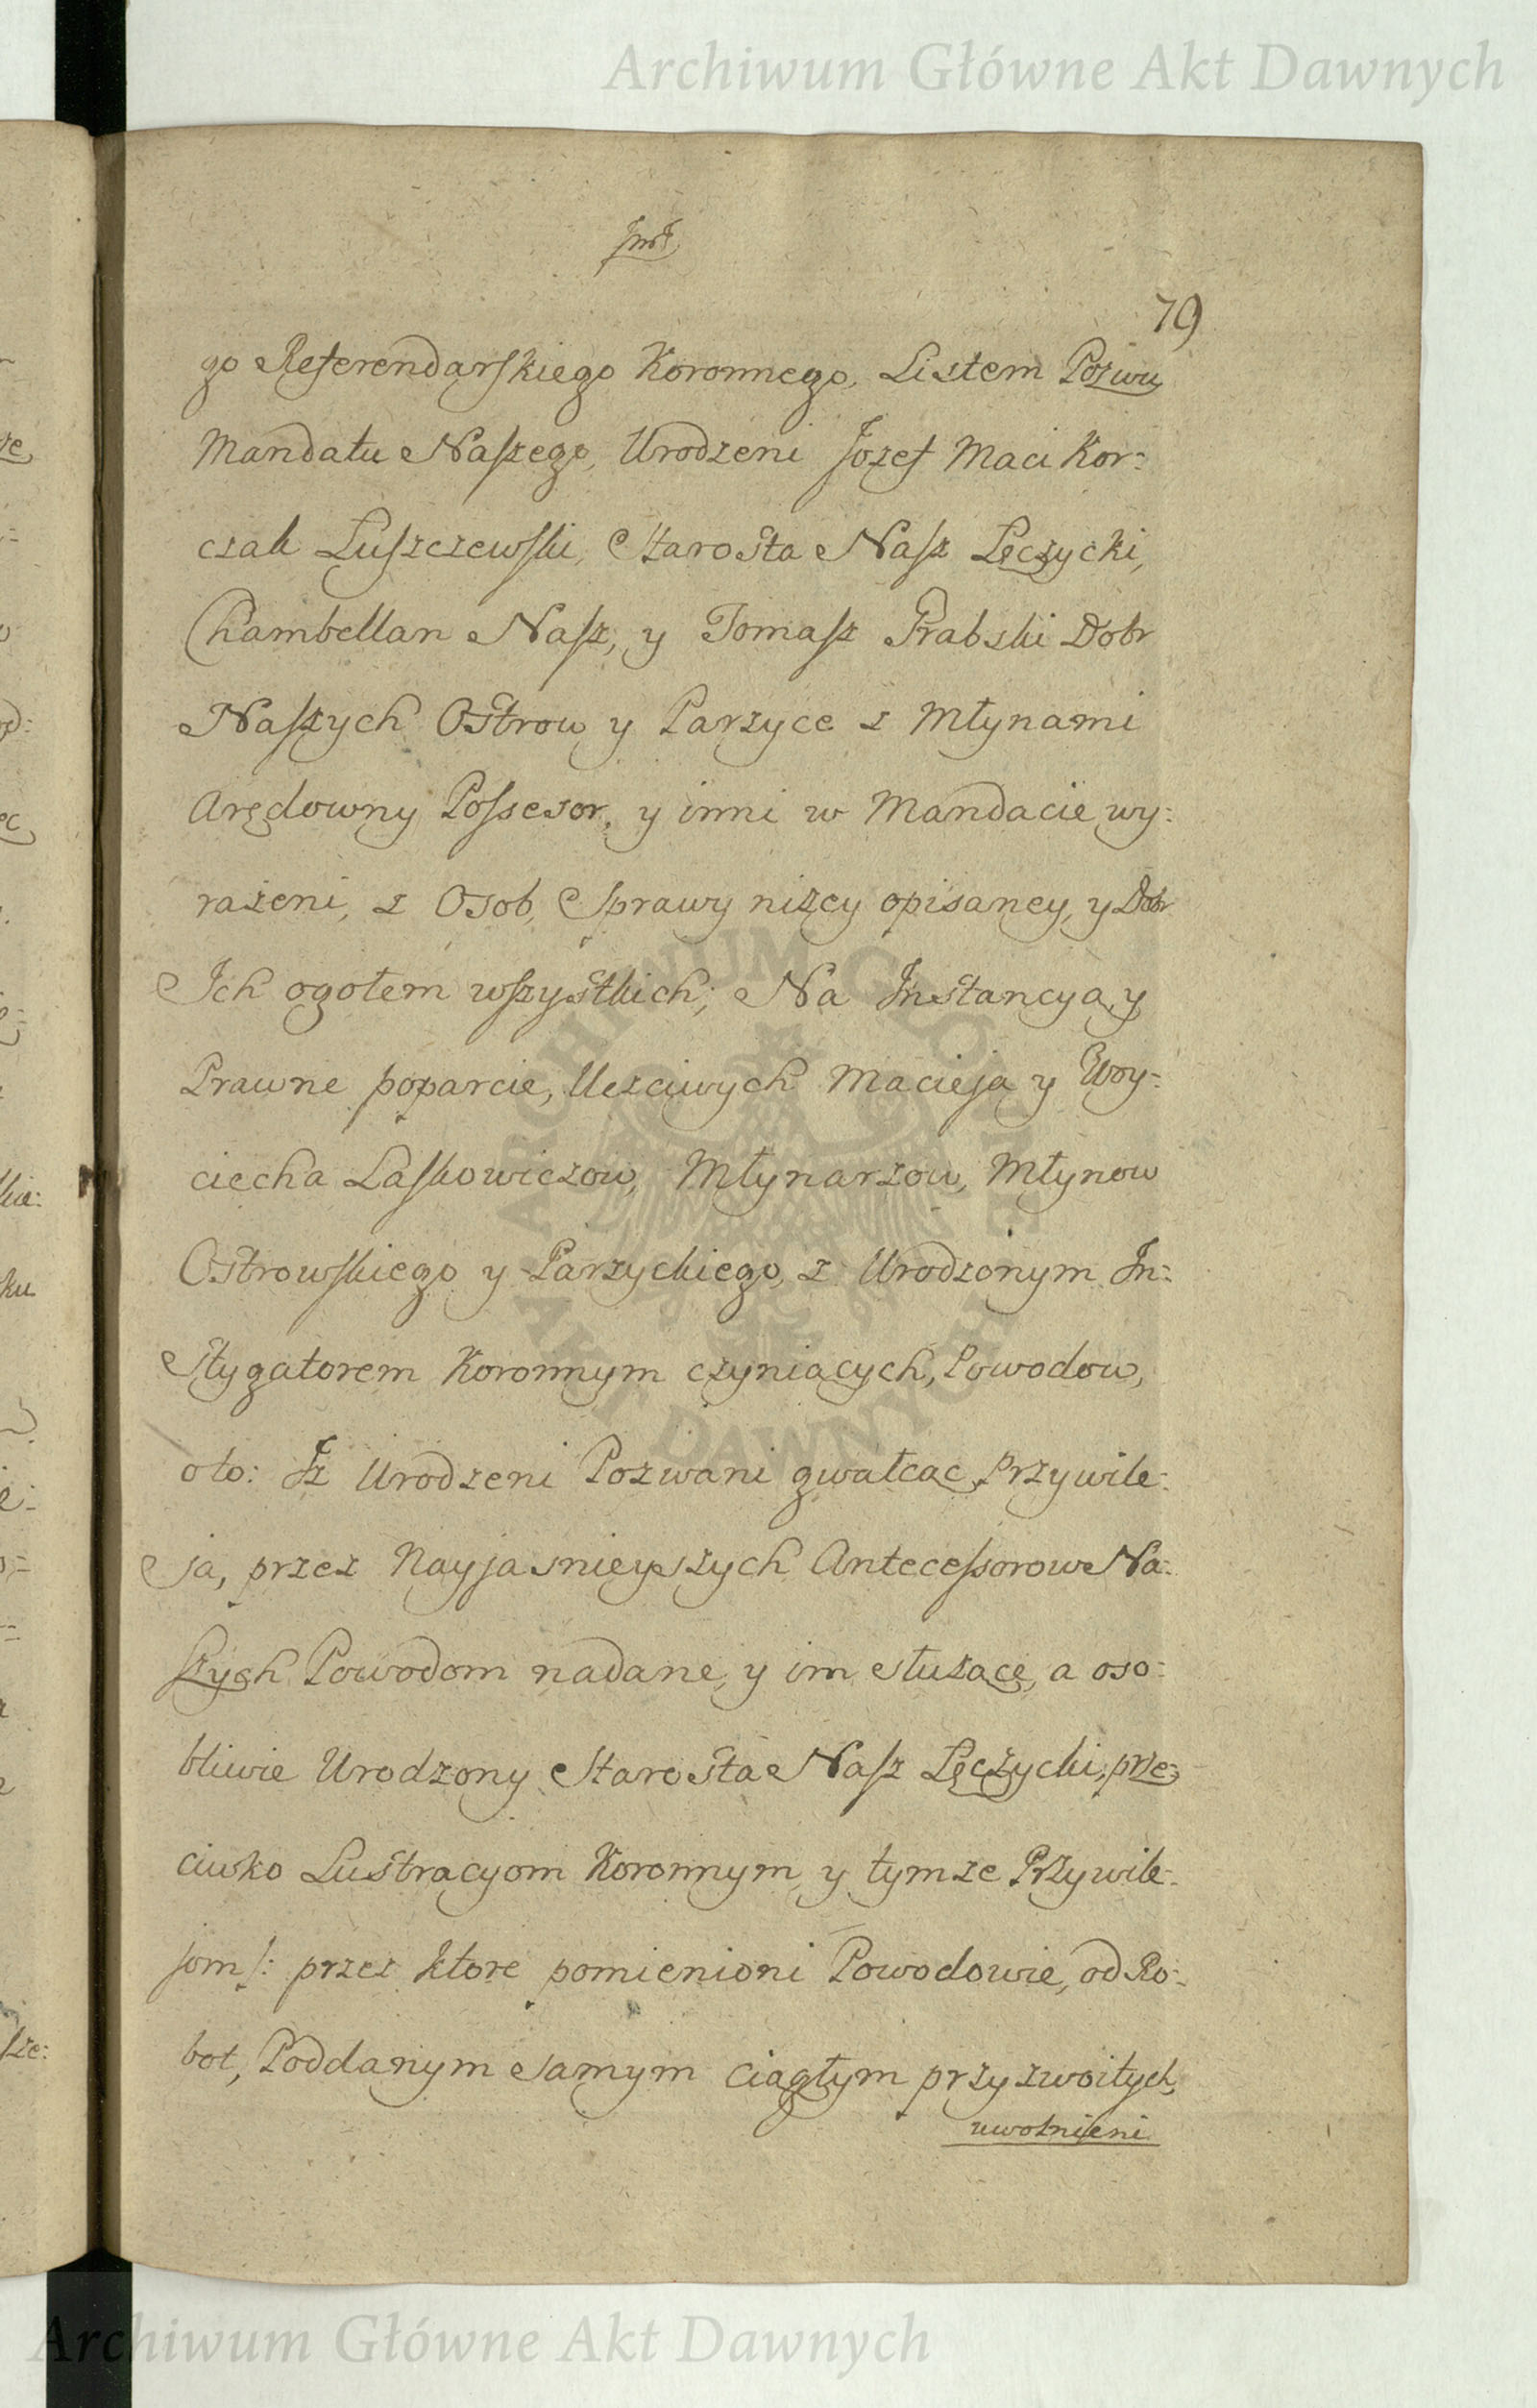 Archiwum Główne Akt Dawnych
79
go Referendarskiego Koronnego, Listem Pozwu
Mandatu Naszego, Urodzeni Jozef Maci Kor:
czak Luszczewski, Starosta Nasz Łęczycki,
Chambellan Nasz, y Tomasz Grabski Dobr
Naszych Ostrow y Parzyce z Młynami
Arędowny Possesor, y inni w Mandacie wy:
rażeni, z Osob, Sprawy niżey opisaney, y Dobr
Ich ogołem wszystkich; Na Instancyą y
Prawne poparcie, Uczciwych Macieja y Woy:
ciecha Laskowiczow, Młynarzow, Młynow
Ostrowskiego y Parzyckiego, z Urodzonym In:
stygatorem Koronnym czyniących, Powodow,
oto: Iż Urodzeni Pozwani gwałcąc Przywile:
ja, przez Nayjasnieyszych Antecessorow Na:
szych Powodom nadane, y im służące, a oso:
bliwie Urodzony Starosta Nasz Łęczycki, prze:
ciwko Lustracyom Koronnym y tymże Przywile:
jom /: przez ktore pomienioni Powodowie, od Ro:
bot, Poddanym samym ciągłym przyzwoitych,
uwolnieni
ARCHIWUM GŁÓWNE
AKT DAWNYCH
Archiwum Główne Akt Dawnych